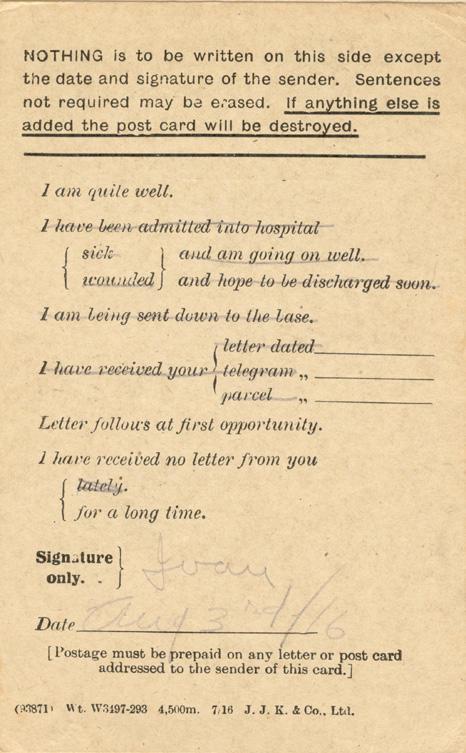 NOTHING is to be written on this side except
the date and signature of the sender. Sentences
not required may be erased. If anything else is
added the post card will be destroyed.
I am quite well.
I have been admitted into hospital
sick and am going on well.
wounded and hope to be discharged soon.
I am being sent down to the base.
letter dated
I have received your telegram „
parcel „
Letter follows at first opportunity.
I have received no letter from you
lately.
for a long time.
Signature
only.
Ivan
Date Aug 3rd/16
[Postage must be prepaid on any letter or post card
addressed to the sender of this card.]
(93871) Wt. W3497-293 4,500m. 7/16 J. J. K. & Co., Ltd.